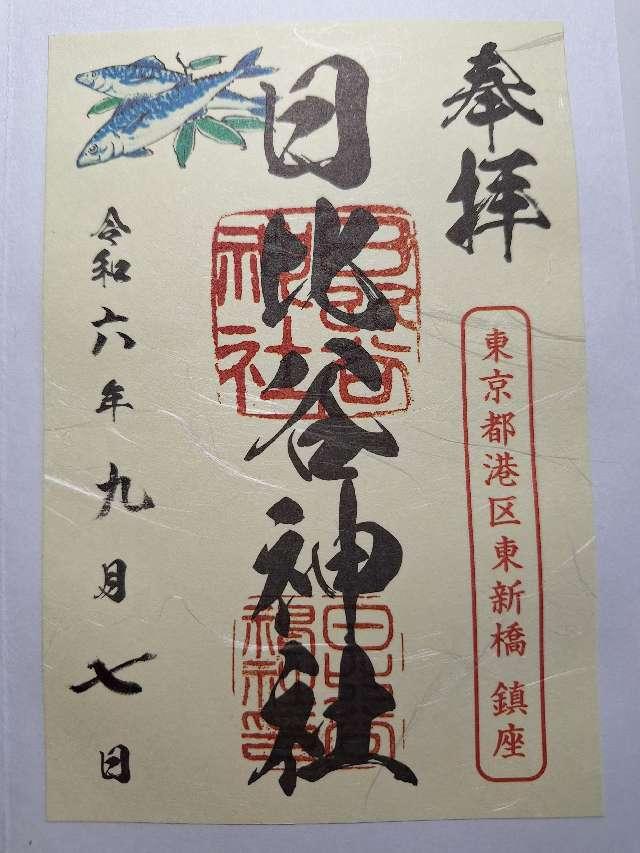 奉拝
東京都港区東新橋 鎮座
日比谷神社
令和六年九月七日